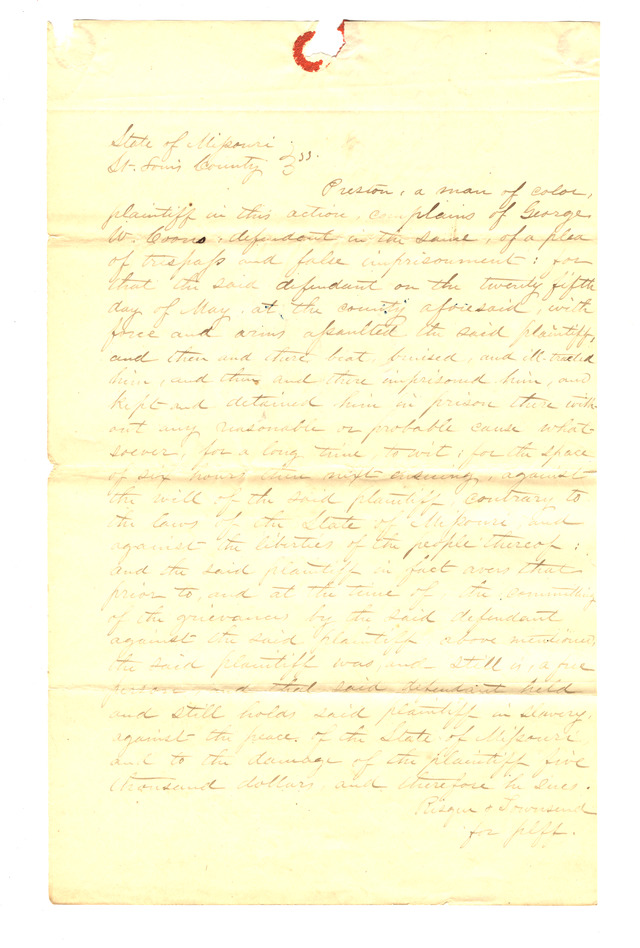 State of Missouri
St. Louis County } ss.
Preston, a man of color,
plaintiff in this action, complains of George
W. Coons, defendant in the same, of a plea
of trespass and false imprisonment: for
that the said defendant on the twenty fifth
day of May, at the county aforesaid, with
force and arms assaulted the said plaintiff,
and then and there beat, bruised, and ill-treated
him, and then and there imprisoned him, and
kept and detained him in prison there with-
out any reasonable or probable cause what-
soever, for a long time, to wit; for the space
of six hours then next ensuing, against
the will of the said plaintiff, contrary to
the laws of the State of Missouri, and
against the liberties of the people thereof:
and the said plaintiff in fact avers that
prior to, and at the time of, the committing
of the grievances by the said defendant
against the said plaintiff above mentioned,
the said plaintiff was, and still is, a free
person, and that said defendant held
and still holds said plaintiff in slavery,
against the peace of the State of Missouri
and to the damage of the plaintiff five
thousand dollars, and therefore he sues.
Risque & Townsend
for plff.